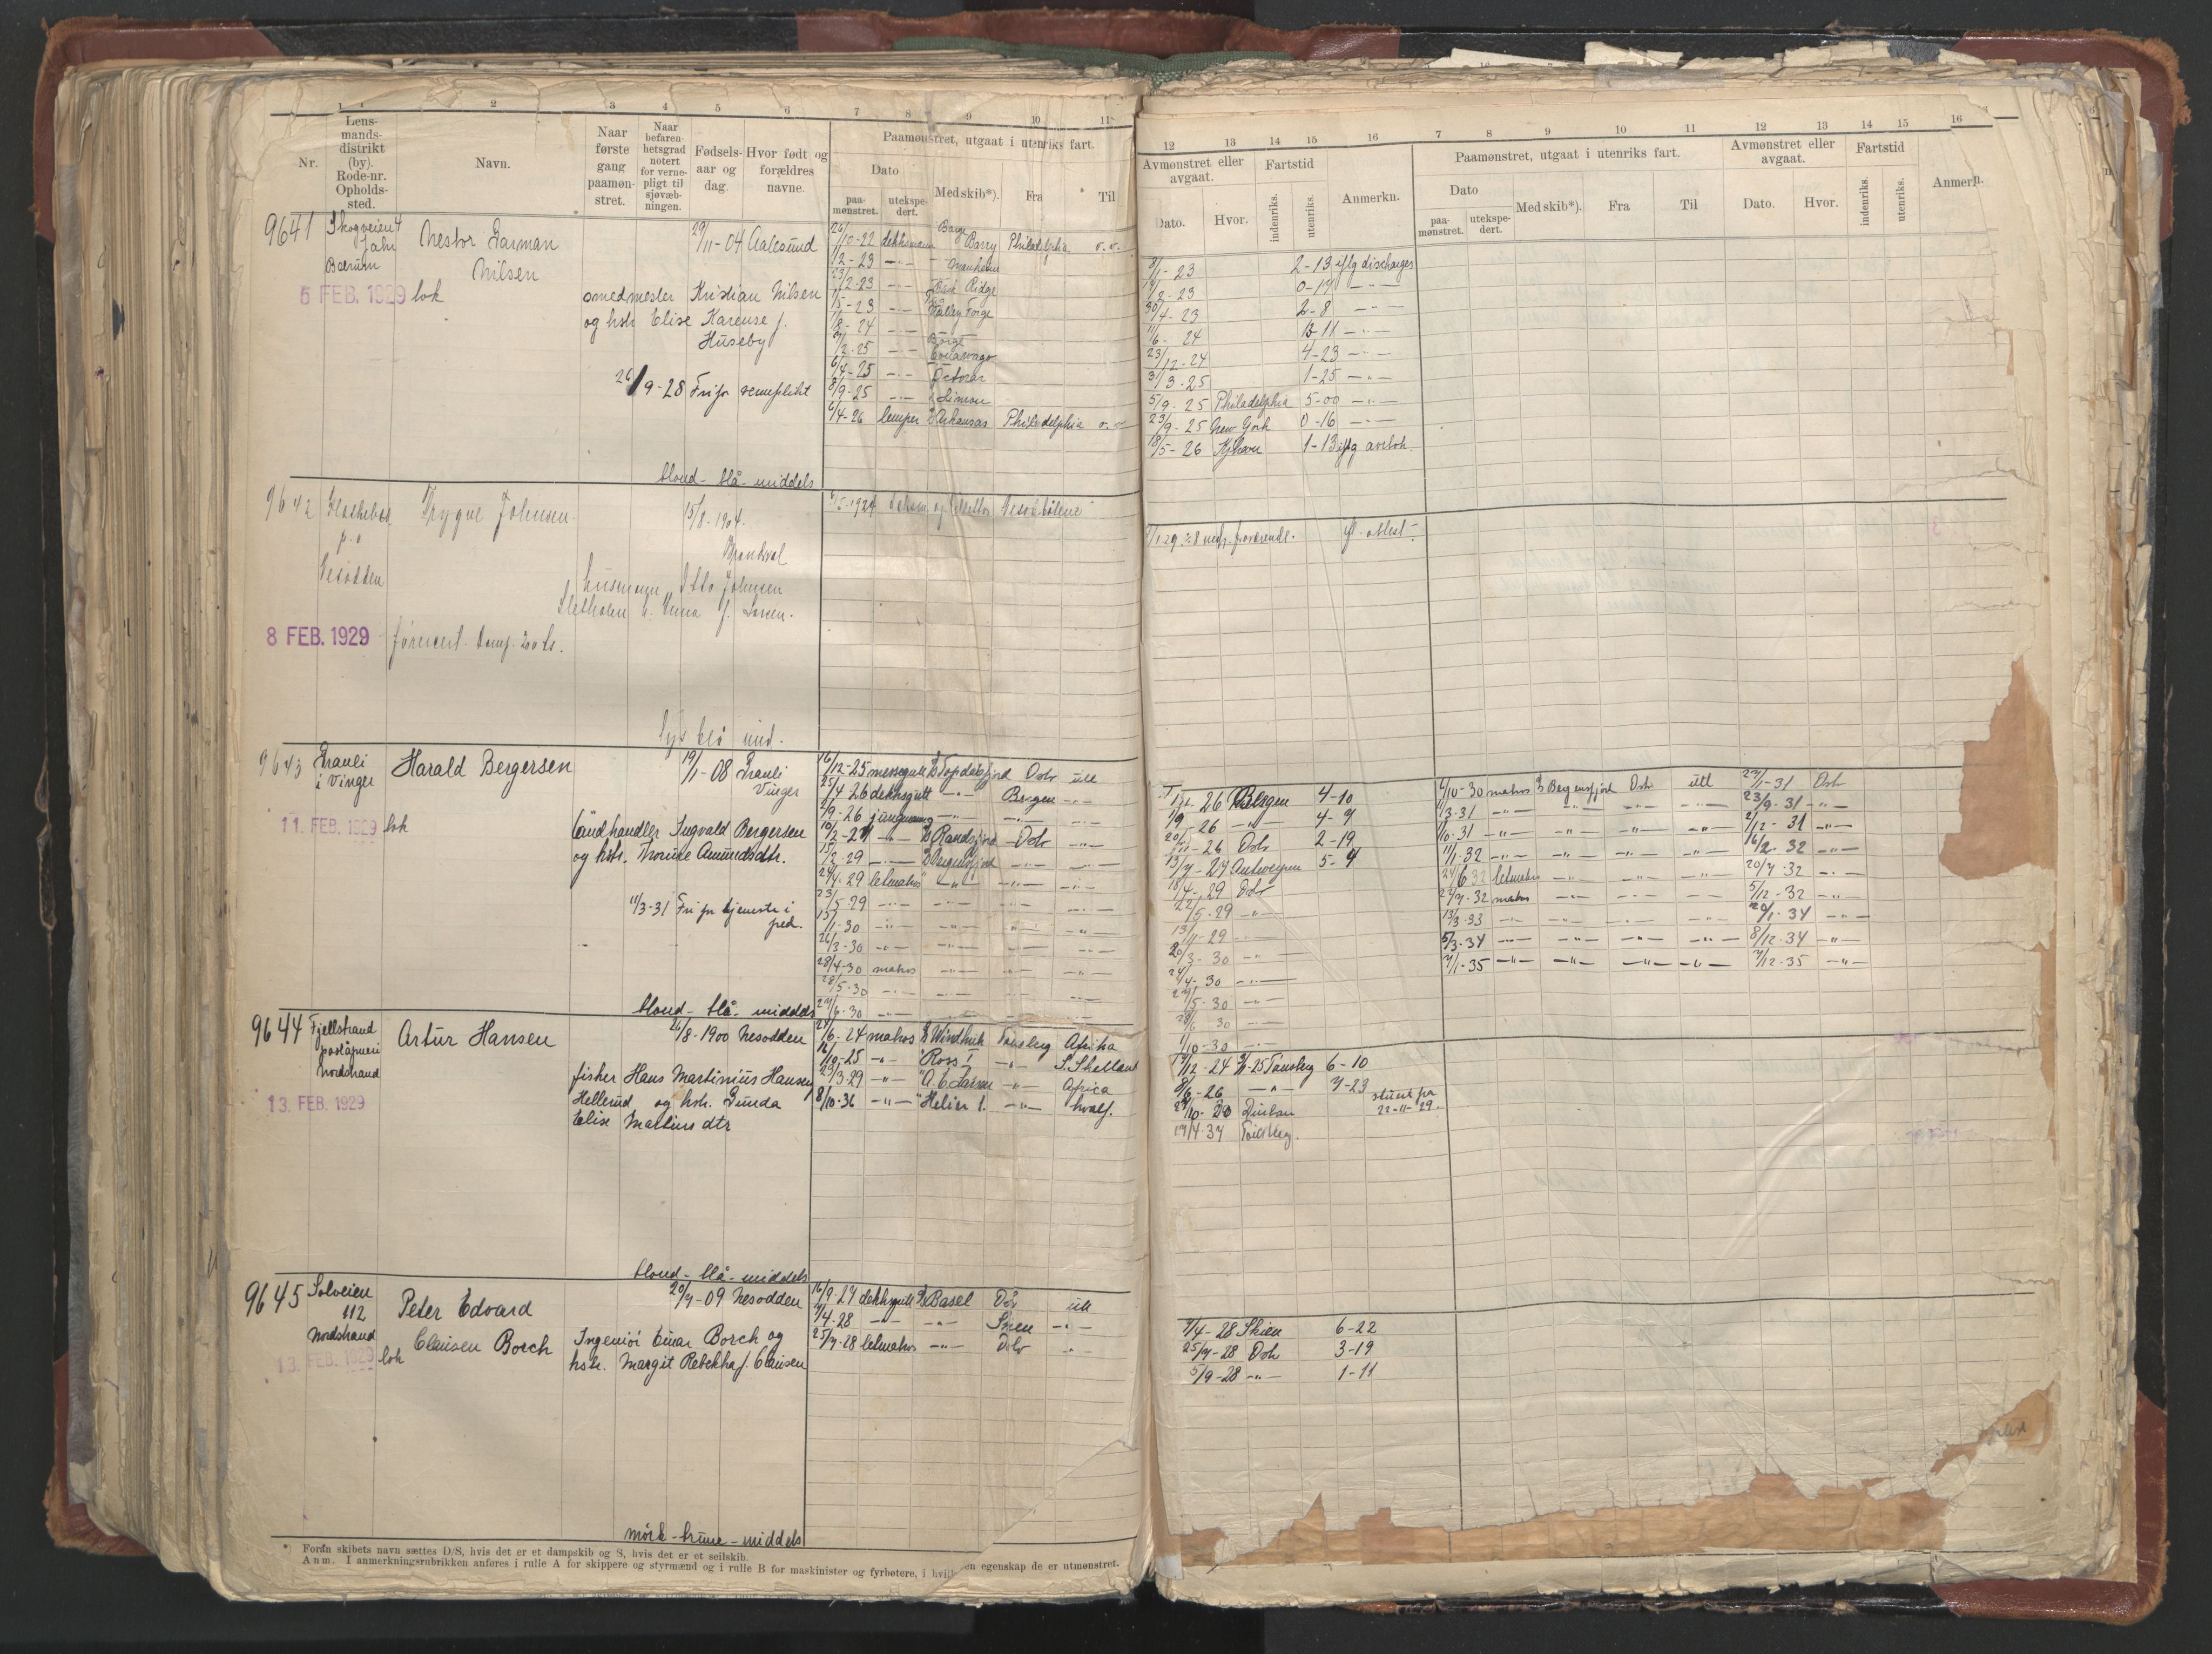 1 2 3 4 5 6 7 8 9 10 11
Nr.
Lens-
mands-
distrikt
(by).
Rode-nr.
Opholds-
sted.
Navn.
Naar
første
gang
paamøn-
stret.
Naar
befaren-
hetsgrad
notert
for verne-
pligt til
sjøvæb-
ningen.
Fødsels-
aar og
dag.
Hvor født og
forældres
navne.
Paamønstret, utgaat i utenriks fart.
Dato
paa-
mønstret.
utekspe-
dert.
Med skib*).
Fra
Til
12 13 14 15 16 7 8 9 10 11 12 13 14 15 16
Avmønstret eller
avgaat.
Dato.
Hvor.
Fartstid
indenriks.
utenriks.
Anmerkn.
Paamønstret, utgaat i utenriks fart.
Dato
paa-
mønstret.
utekspe-
dert.
Med skib*).
Fra
Til
Avmønstret eller
avgaat.
Dato.
Hvor.
Fartstid
indenriks.
utenriks.
Anmerkn.
9641
Skogveien 4
Jahr
Bærum
5 FEB. 1929
lok
Nestor Darman
Nilsen
29/11-04 Aalesund
smedmester Kristian Nilsen
og hstr. Elise Karense f.
Huseby
20/9-28 Fri for verneplikt
blond - blå - middels
26/10-22 dekksmann Barge Barry Philadelphia v.v.
1/2-23 -"- Manheim
23/2-23 -"- Blue Ridge
1/5-23 -"- Valley Forge
1/8-24 -"-
2/2-25 -"-
6/4-25 -"- Octorar
8/9-25 -"- Limon
6/4-26 lemper D/S Arkansas Philadelphia v.v.
8/1-23 2-13 iflg discharges
12/2-23 0-17 -"-
30/4-23 2-8 -"-
11/6-24 13-11 -"-
23/12-24 4-23 -"-
31/3-25 1-25 -"-
5/9-25 Philadelphia 5-00 -"-
23/9-25 New York 0-16 -"-
18/5-26 Kjhavn 1-13 iflg avrbok.
9642
p.o
Nesodden
8 FEB. 1929
Trygve Johnsen
15/8-1904.
Brandval
husmann Otto Johnsen
Sletholen h. Anna f. Larsen.
førercert. damp. 200 ts.
lys blå mid.
1/5-1924
fl. attest.
9643
Trauli
i Vinger
11. FEB. 1929
lok
Harald Bergersen
19/1-08 Trauli
Vinger
landhandler Ingvald Bergersen
og hstr. Thorine Amundsdtr.
11/3-31 Fri for tjeneste i
fred.
blond - blå - middels
16/12-25 messegutt D/S Topdalsfjord Oslo utl
25/4-26 dekksgutt -"- Bergen -"-
2/9-26 jungmann -"- -"- -"-
10/2-27 -"- D/S Randsfjord Oslo -"-
15/2-29 -"- D/S Bergensfjord -"- -"-
24/4-29 letmatros -"- -"- -"-
23/5-29 -"- -"- -"- -"-
15/1-30 -"- -"- -"- -"-
26/3-30 -"- -"- -"- -"-
28/4-30 matros -"- -"- -"-
28/5-30 -"- -"- -"- -"-
27/6-30 -"- -"- -"- -"-
26 Bergen 4-10
1/9-26 -"- 4-9
20/11-26 Oslo 2-19
13/7-27 Antwerpen 5-4
18/4-29 Oslo
22/5-29 -"-
13/11-29 -"-
20/3-30 -"-
24/4-30 -"-
24/5-30 -"-
28/6 30 -"-
1/10-30 -"-
2/10-30 matros D/S Bergensfjord Oslo utl 27/1-31 Oslo
11/3-31 -"- -"- -"- -"- 23/9-31 -"-
1/10-31 -"- -"- -"- -"- 2/12-31 -"-
11/1-32 -"- -"- -"- -"- 16/2-32 -"-
24/6 32 letmatros -"- -"- -"- 20/7-32 -"-
27/7-32 matros -"- -"- -"- 5/12-32 -"-
13/3-33 -"- -"- -"- -"- 20/1-34 -"-
5/3-34 -"- -"- -"- -"- 8/12-34 -"-
7/1-35 -"- -"- -"- -"- 7/12-35 -"-
9644
Fjellstrand
poståpneri
Nordstrand
13. FEB. 1929
Artur Hansen
26/8-1900 Nesodden
fisker Hans Martinius Hansen
Hellerud og hstr. Gunda
Elise Martinsdtr
blond - blå - middels
27/6-24 matros D/S Windhuk Tønsberg Afrika
16/10-25 -"- "Ross" -"- S. Shetland
23/3-29 -"- "A. E. Larsen -"- Africa
8/10-36 -"- "Helier 1. -"- hvalf.
17/12-24 25 Tønsberg 6-10
8/6-26 -"- 7-23
Durban
22-11-29.
17/4-37 Tønsberg.
9645
Solveien
112
Nordstrand
13. FEB. 1929
lok
Peter Edvard
Clausen Borch
20/7-09 Nesodden
Ingeniør Einar Borch og
hstr. Margit Rebekka f. Clausen
mörk - brune - middels
16/9-27 dekksgutt D/S Basel Oslo utl
7/4-28 -"- -"- Skien -"-
25/7-28 letmatros -"- Oslo -"-
7/4-28 Skien 6-22
25/7-28 Oslo 3-19
5/9-28 -"- 1-11
*) Foran skibets navn sættes D/S, hvis det er et dampskib og S, hvis det er et seilskib.
Anm. I anmerkningsrubrikken anføres i rulle A for skippere og styrmænd og i rulle B for maskinister og fyrbøtere, i hvil en egenskap de er utmønstret.